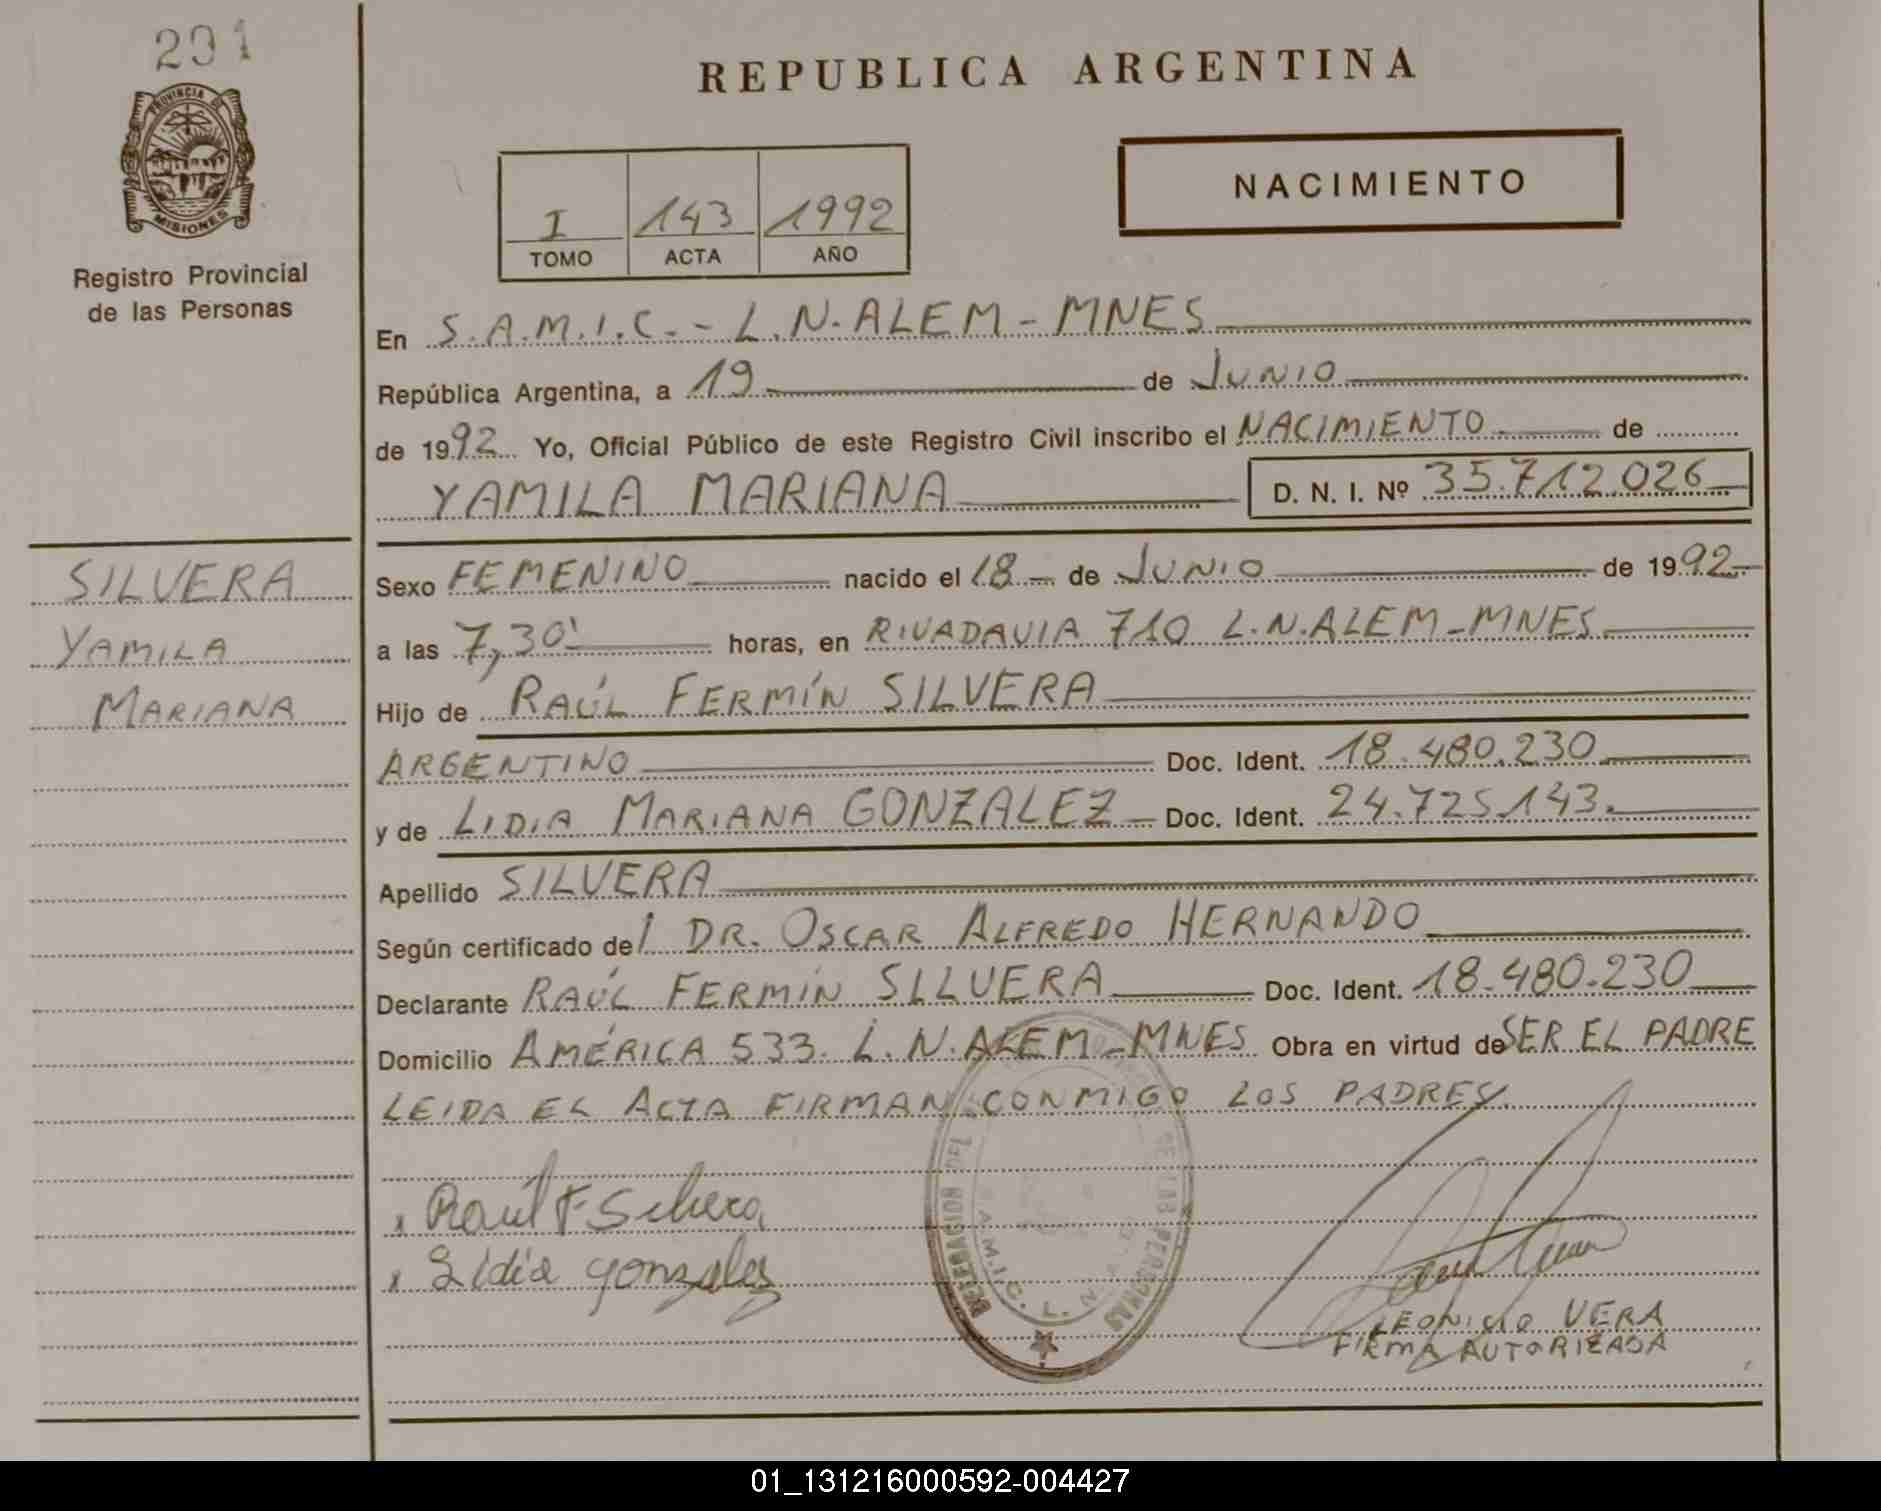 291
PROVINCIA DE
MISIONES
Registro Provincial
de las Personas
SILVERA
YAMILA
MARIANA
REPUBLICA ARGENTINA
NACIMIENTO
I 143 1992
TOMO ACTA AÑO
En S.A.M.I.C.- L.N.ALEM - MNES
República Argentina, a 19 de JUNIO
de 1992 Yo, Oficial Público de este Registro Civil inscribo el NACIMIENTO de
YAMILA MARIANA D. N. I. Nº 35.712.026
Sexo FEMENINO nacido el 18 de JUNIO de 1992
a las 7,30' horas, en RIVADAVIA 710 L.N.ALEM-MNES
Hijo de RAÚL FERMÍN SILVERA
ARGENTINO Doc. Ident. 18.480.230
y de LIDIA MARIANA GONZALEZ Doc. Ident. 24.725.143.
Apellido SILVERA
Según certificado del DR. OSCAR ALFREDO HERNANDO
Declarante RAÚL FERMÍN SILVERA Doc. Ident. 18.480.230
Domicilio AMÉRICA 533. L.N.ALEM-MNES Obra en virtud de SER EL PADRE
LEIDA EL ACTA FIRMAN CONMIGO LOS PADRES.
Raúl F Silvera
Lidia Gonzalez
DELEGACION DEL DE LAS PERSONAS
S.A.M.I.C. L. N.
LEONICIO VERA
FIRMA AUTORIZADA
01_131216000592-004427